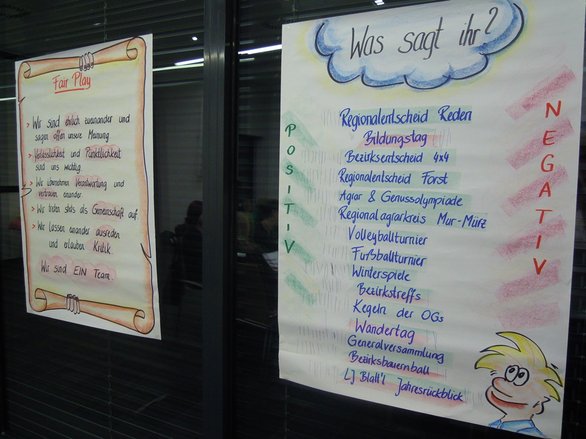 Fair Play
> Wir sind ehrlich zueinander und
sagen offen unsere Meinung
> Verlässlichkeit und Pünktlichkeit
sind uns wichtig
> Wir übernehmen Verantwortung und
vertrauen einander
> Wir treten stets als Gemeinschaft auf
> Wir lassen einander ausreden
und erlauben Kritik
Wir sind EIN Team
Was sagt ihr?
POSITIV
NEGATIV
Regionalentscheid Reden
Bildungstag
Bezirksentscheid 4x4
Regionalentscheid Forst
Agrar & Genussolympiade
Regionalagrarkreis Mur-Mürz
Volleyballturnier
Fußballturnier
Winterspiele
Bezirkstreffs
Kegeln der OGs
Wandertag
Generalversammlung
Bezirksbauernball
LJ Blatt'l Jahresrückblick